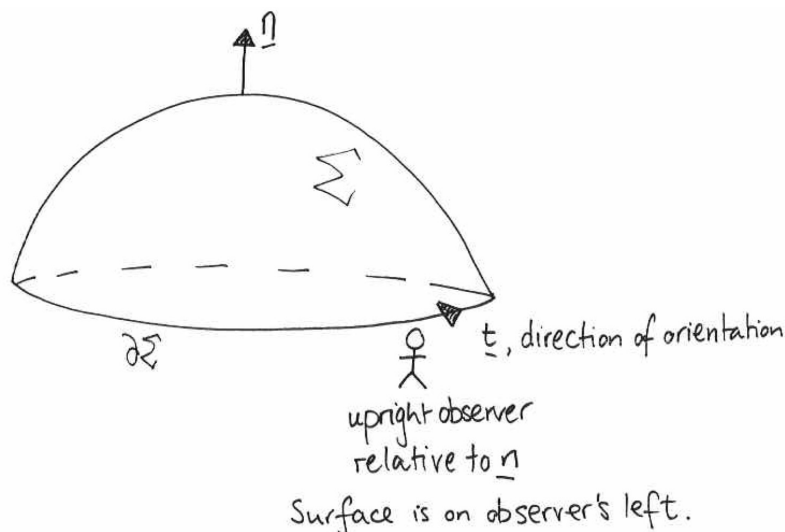 n
Σ
∂Σ
t, direction of orientation
upright observer
relative to n
Surface is on observer's left.